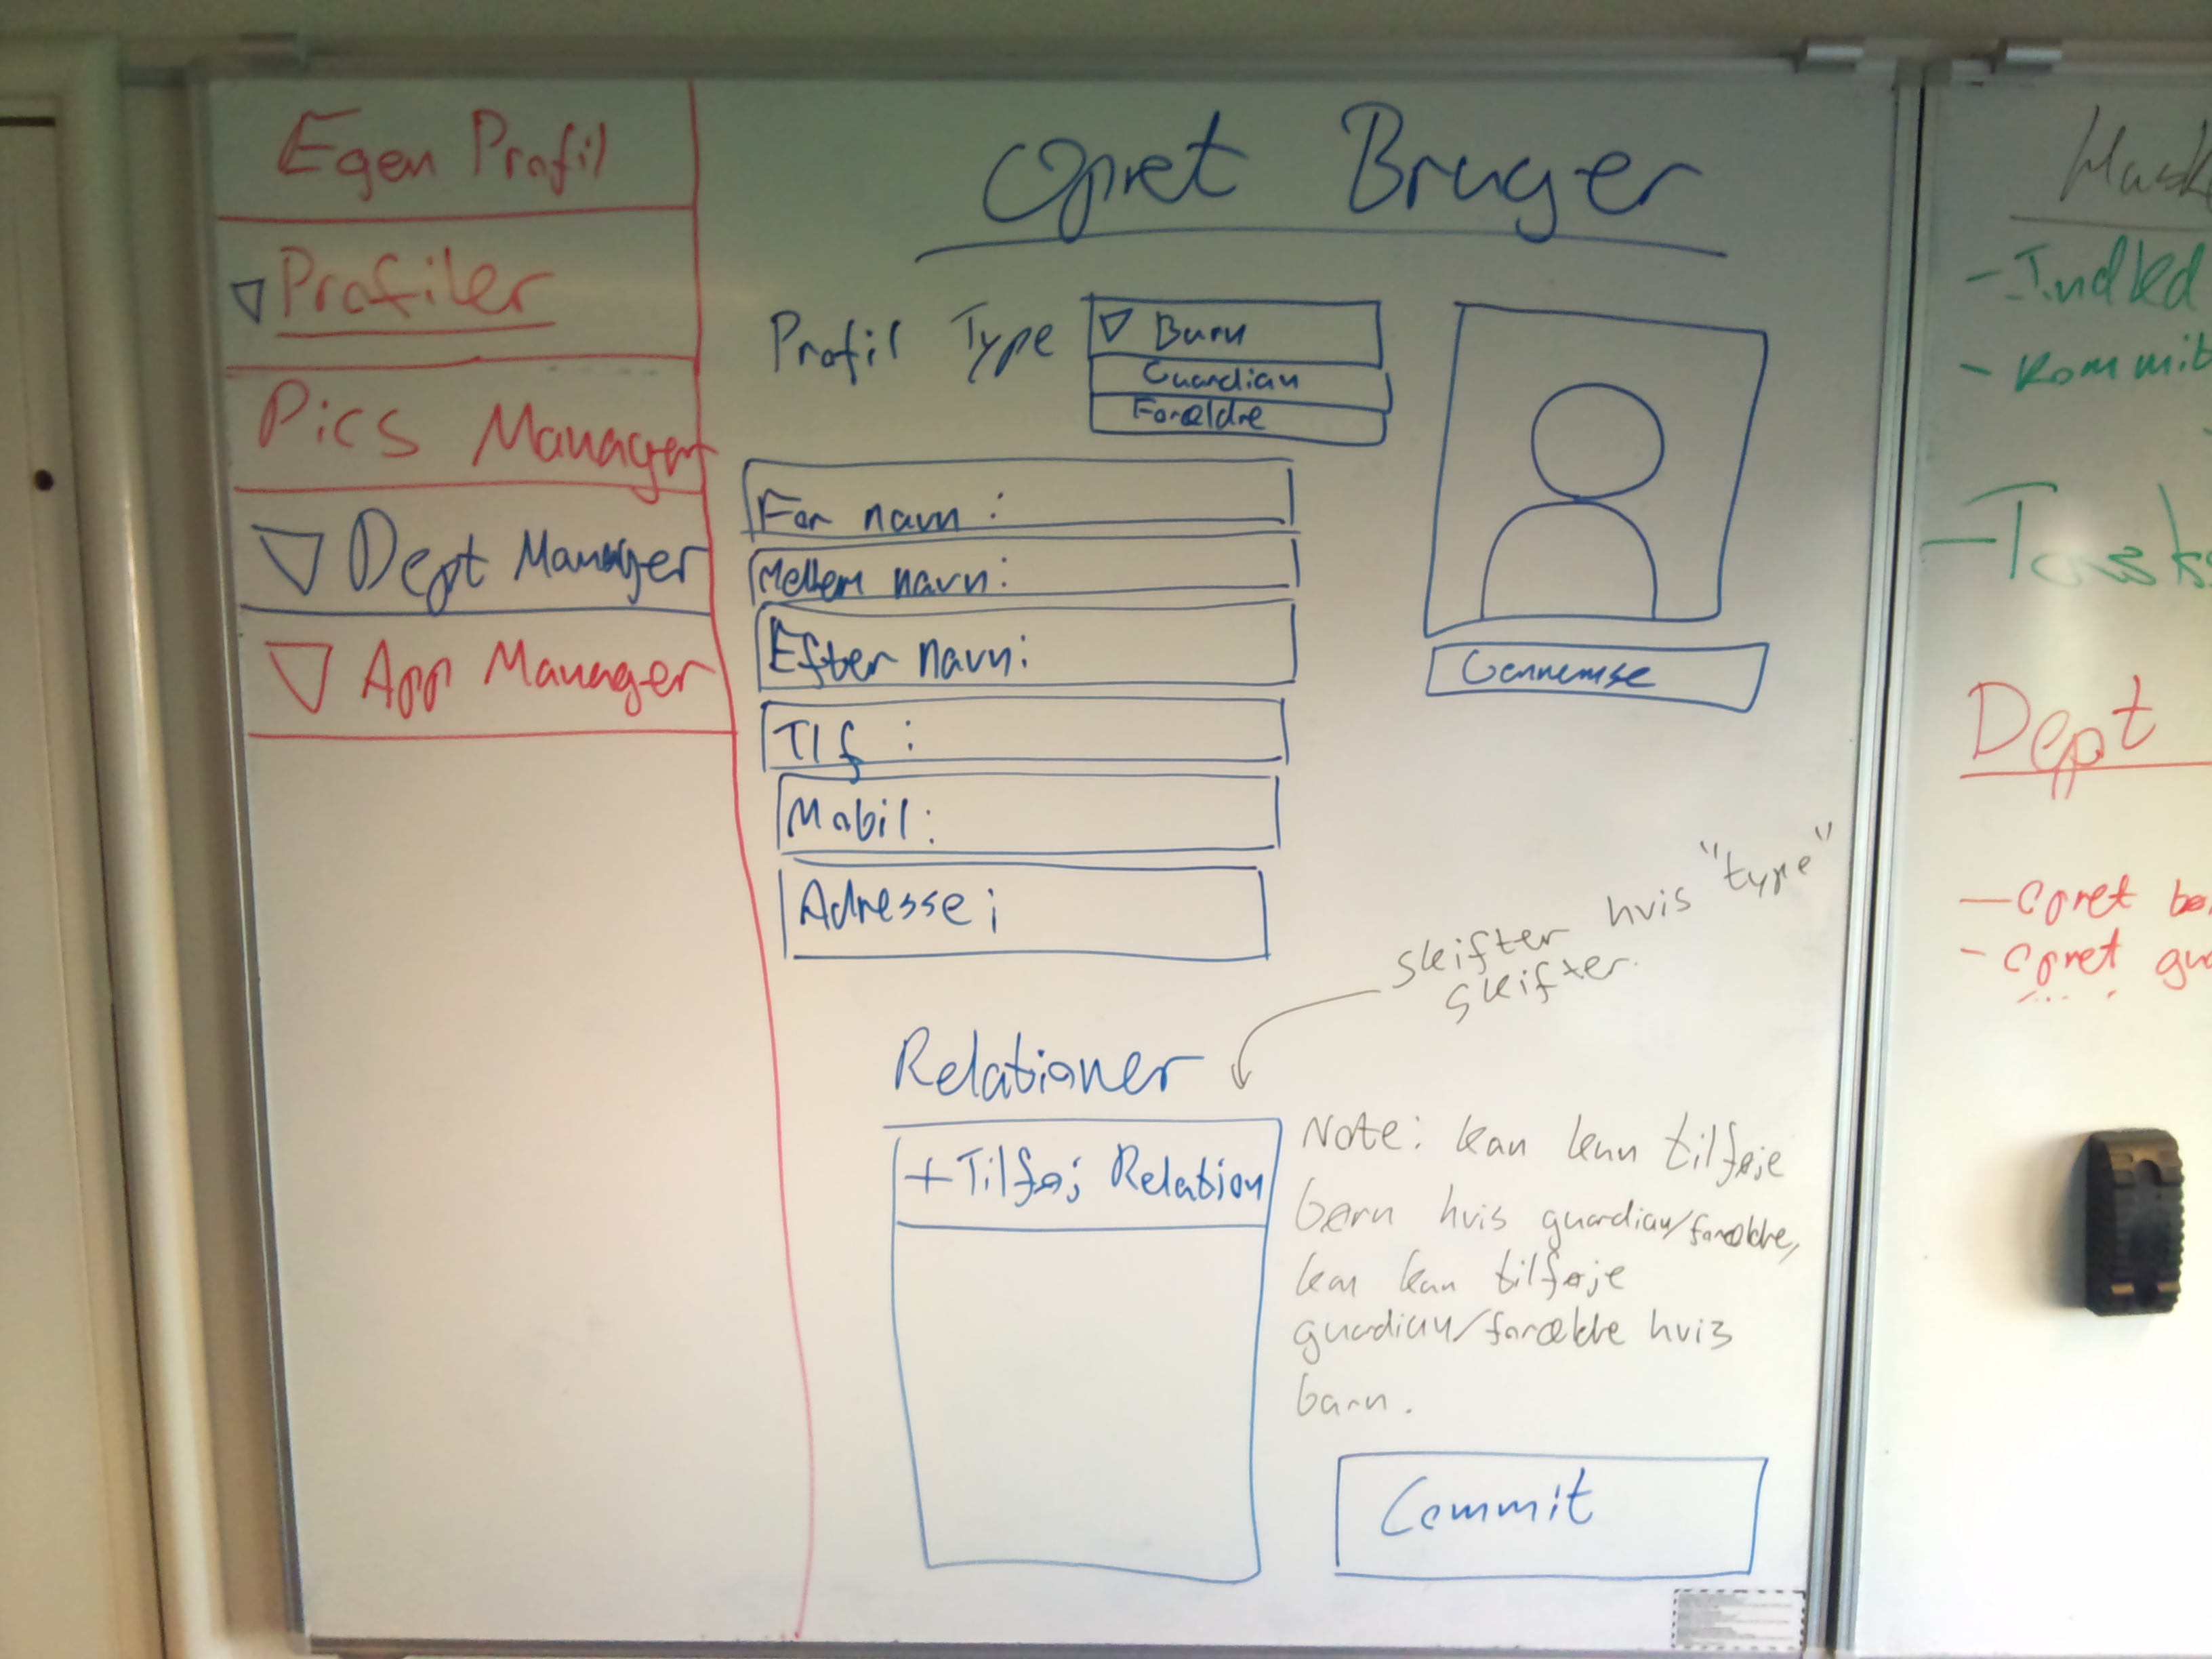 Egen Profil
Profiler
Pics Manager
Dept Manager
App Manager
Opret Bruger
Profil Type
Barn
Guardian
Forældre
For navn :
Mellem navn:
Efter navn:
Tlf :
Mobil:
Adresse:
Gennemse
skifter hvis "type"
skifter.
Relationer
+ Tilføj Relation
Note: kan kun tilføje
børn hvis guardian/forældre,
kan kun tilføje
guardian/forældre hvis
barn.
Commit
- Indled
- Kommit
- Tasks
Dept
- Opret
- Opret